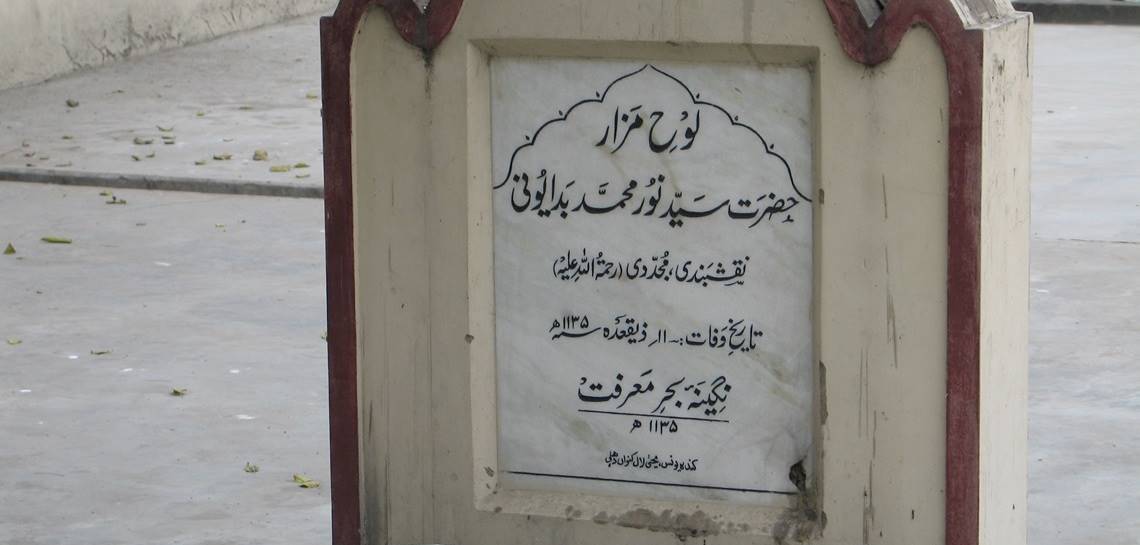 لَوْحِ مَزار
حضرَت سیّد نُور محمَّد بَدایُونی
نقشبَندی، مُجدّدی (رحمۃُ اللہِ علیْہ)
تاریخِ وَفات:۔ ۱۱؍ ذیقعدَہ سنہ ۱۱۳۵ھ
نِگینَۂ بحرِ مَعرفتْ
۱۱۳۵ ھ
کندہ یونس، لال کنواں دھلی